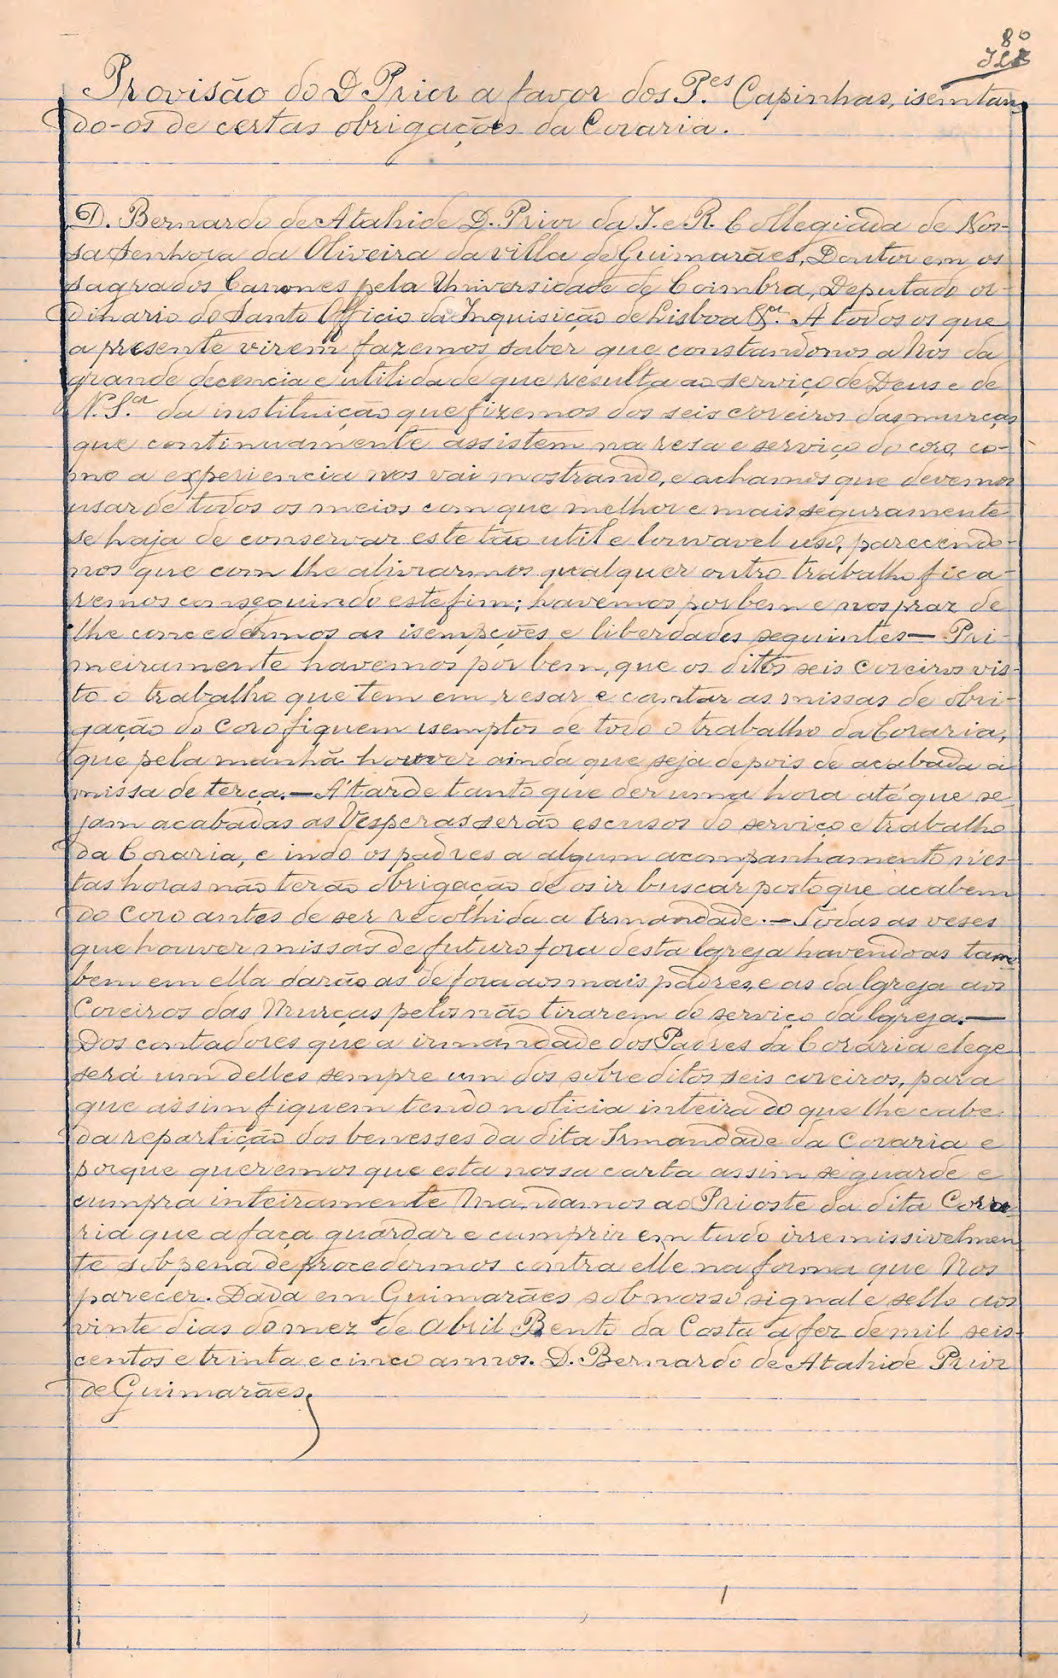 80
Provisão do D Prior a favor dos P.es Capinhas, isentan
do-os de certas obrigações da Coraria.
D. Bernardo de Atahide D. Prior da I. e R. Collegiada de Nos-
sa Senhora da Oliveira da villa de Guimarães, Doutor em os
sagrados Canones pela Universidade de Coimbra, Deputado or
dinario do Santo Officio da Inquisição de Lisboa &.a A todos os que
a presente virem fazemos saber que constandonos a Nos da
grande decencia e utilidade que resulta ao serviço de Deus e de
N. S.a da instituição que fizemos dos seis coreiros das murças
que continuamente assistem na resa e serviço do coro, co-
mo a experiencia nos vai mostrando, e achamos que devemos
usar de todos os meios com que melhor e mais seguramente
se haja de conservar este tão util e louvavel uso, parecendo-
nos que com lhe alivrarmos qualquer outro trabalho fica-
remos conseguindo este fim; havemos por bem e nos praz de
lhe concedermos as isempções e liberdades seguintes — Pri-
meiramente havemos por bem, que os ditos seis coreiros vis-
to o trabalho que tem em resar e cantar as missas de obri-
gação do Coro fiquem isemptos de todo o trabalho da Coraria,
que pela manhã houver ainda que seja depois de acabada a
missa de terça. — Á tarde tanto que der uma hora até que se-
jam acabadas as Vesperas serão escusos do serviço e trabalho
da Coraria, e indo os padres a algum acompanhamento n'es-
tas horas não terão obrigação de os ir buscar posto que acabem
do Coro antes de ser recolhida a Irmandade. — Todas as veses
que houver missas de futuro fora desta Igreja havendo as tam
bem em ella darão as de fora aos mais padres, e as da Igreja aos
Coreiros das Murças pelos não tirarem do serviço da Igreja. —
Dos contadores que a irmandade dos Padres da Coraria elege
será um delles sempre um dos sobreditos seis coreiros, para
que assim fiquem tendo noticia inteira do que lhe cabe
da repartição dos benesses da dita Irmandade da Coraria e
porque queremos que esta nossa carta assim se guarde e
cumpra inteiramente Mandamos ao Prioste da dita Cora
ria que a faça guardar e cumprir em tudo irremissivelmen
te sob pena de procedermos contra elle na forma que Nos
parecer. Dada em Guimarães sob nosso signal e sello aos
vinte dias do mez de Abril Bento da Costa a fez de mil seis-
centos e trinta e cinco annos. D. Bernardo de Atahide Prior
de Guimarães.